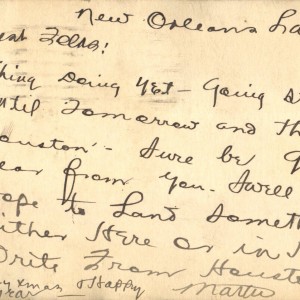 New Orleans La
eat Folks!
hing doing yet – Going st
ntil Tomorrow and th
ouston – Sure be g
ear from you. Swell
ope to Land someth
ither Here or in H
Write From Houst
y Xmas & Happy Martin
year